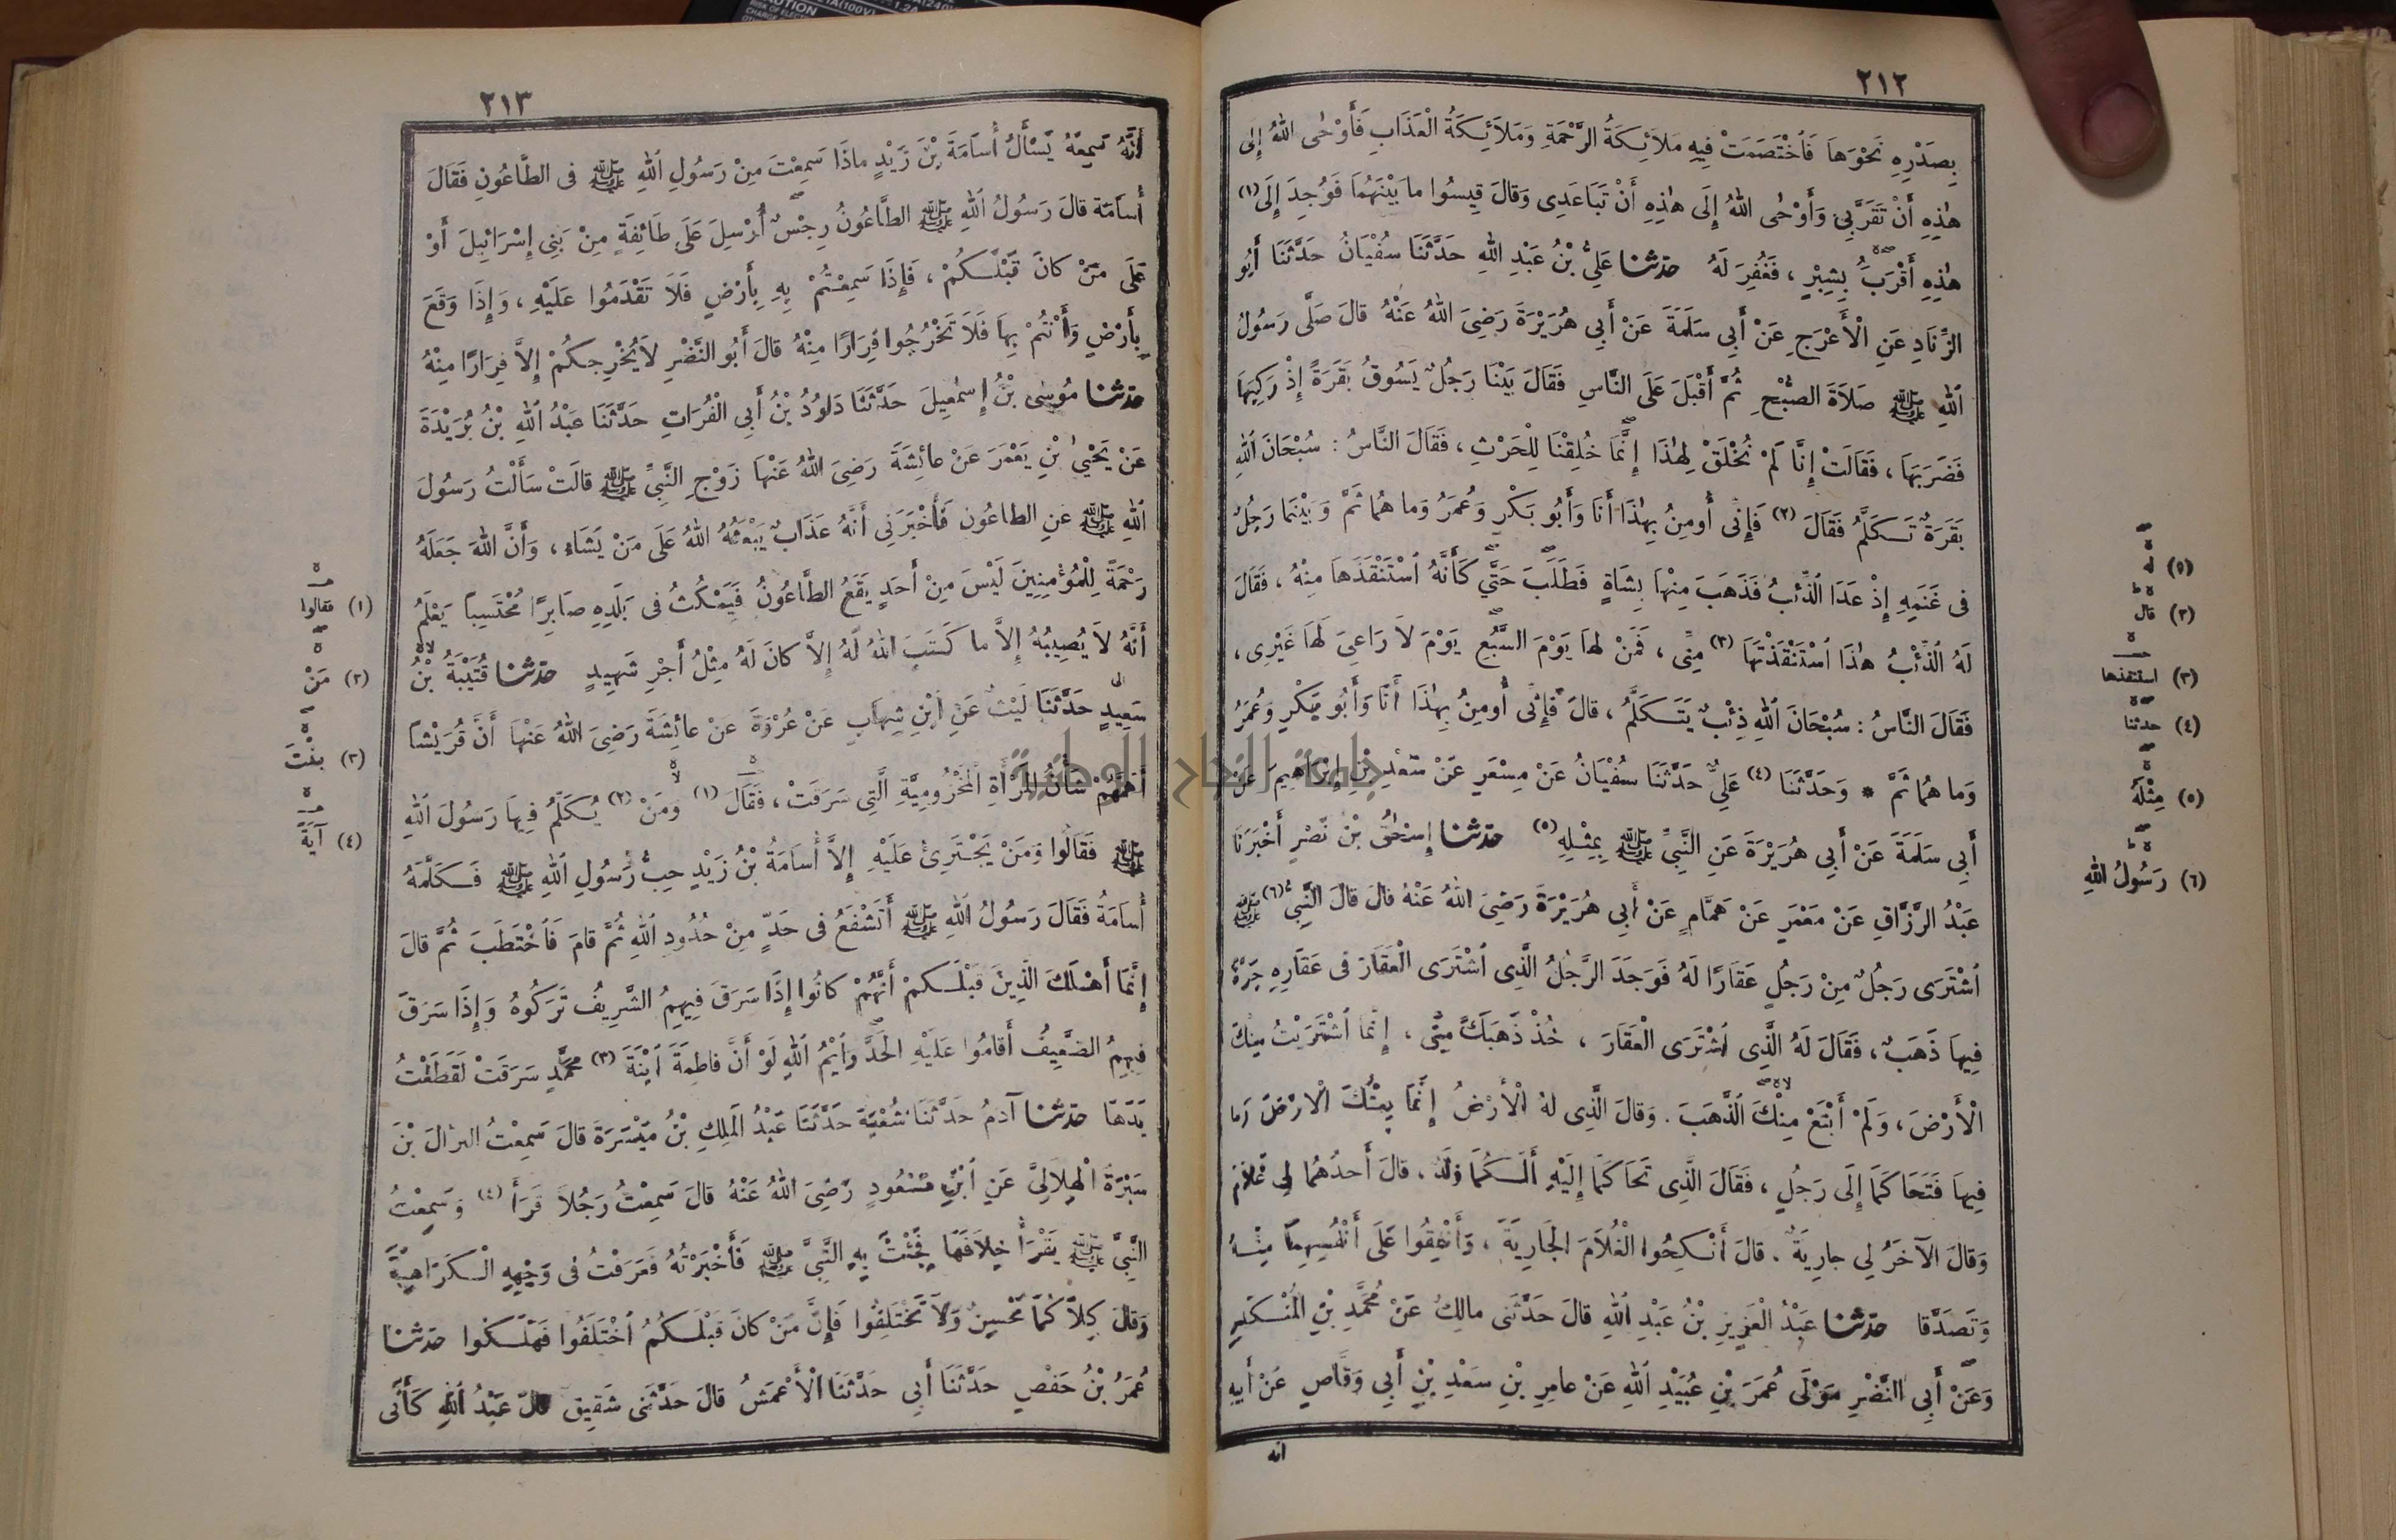 ٢١٢
بِصَدْرِهِ نَحْوَهَا فَاخْتَصَمَتْ فِيهِ مَلَائِكَةُ الرَّحْمَةِ وَمَلَائِكَةُ الْعَذَابِ فَأَوْحٰى اللهُ إِلَى
هٰذِهِ أَنْ تَقَرَّبِي وَأَوْحٰى اللهُ إِلَى هٰذِهِ أَنْ تَبَاعَدِى وَقالَ قِيسُوا ما بَيْنَهُمَا فَوُجِدَ إِلَى (١)
هٰذِهِ أَقْرَبُ بِشِبْرٍ ، فَغُفِرَ لَهُ حَدَّثَنَا عَلِيُّ بْنُ عَبْدِ اللهِ حَدَّثَنَا سُفْيَانُ حَدَّثَنَا أَبُو
الزِّنَادِ عَنِ الْأَعْرَجِ عَنْ أَبِي سَلَمَةَ عَنْ أَبِي هُرَيْرَةَ رَضِيَ اللهُ عَنْهُ قالَ صَلَّى رَسُولُ
اللهِ ﷺ صَلَاةَ الصُّبْحِ ثُمَّ أَقْبَلَ عَلَى النَّاسِ فَقَالَ بَيْنَا رَجُلٌ يَسُوقُ بَقَرَةً إِذْ رَكِبَهَا
فَضَرَبَهَا ، فَقَالَتْ إِنَّا لَمْ نُخْلَقْ لِهٰذَا إِنَّمَا خُلِقْنَا لِلْحَرْثِ ، فَقَالَ النَّاسُ : سُبْحَانَ اللهِ
بَقَرَةٌ تَكَلَّمُ فَقَالَ (٢) فَإِنِّى أُومِنُ بِهٰذَا أَنَا وَأَبُو بَكْرٍ وَعُمَرُ وَما هُمَا ثَمَّ وَبَيْنَمَا رَجُلٌ
فى غَنَمِهِ إِذْ عَدَا الذِّئْبُ فَذَهَبَ مِنْهَا بِشَاةٍ فَطَلَبَ حَتَّى كَأَنَّهُ اسْتَنْقَذَهَا مِنْهُ ، فَقَالَ
لَهُ الذِّئْبُ هٰذَا اسْتَنْقَذْتَهَا (٣) مِنِّى ، فَمَنْ لَهَا يَوْمَ السَّبُعِ يَوْمَ لَا رَاعِىَ لَهَا غَيْرِى ،
فَقَالَ النَّاسُ : سُبْحَانَ اللهِ ذِئْبٌ يَتَكَلَّمُ ، قالَ فَإِنِّى أُومِنُ بِهٰذَا أَنَا وَأَبُو بَكْرٍ وَعُمَرُ
وَما هُمَا ثَمَّ * وَحَدَّثَنَا (٤) عَلِيٌّ حَدَّثَنَا سُفْيَانُ عَنْ مِسْعَرٍ عَنْ سَعْدِ بْنِ إِبْرَاهِيمَ عَنْ
أَبِي سَلَمَةَ عَنْ أَبِي هُرَيْرَةَ عَنِ النَّبِيِّ ﷺ بِمِثْلِهِ (٥) حَدَّثَنَا إِسْحٰقُ بْنُ نَصْرٍ أَخْبَرَنَا
عَبْدُ الرَّزَّاقِ عَنْ مَعْمَرٍ عَنْ هَمَّامٍ عَنْ أَبِي هُرَيْرَةَ رَضِيَ اللهُ عَنْهُ قالَ قالَ النَّبِيُّ (٦) ﷺ
اشْتَرَى رَجُلٌ مِنْ رَجُلٍ عَقَارًا لَهُ فَوَجَدَ الرَّجُلُ الَّذِى اشْتَرَى الْعَقَارَ فى عَقَارِهِ جَرَّةً
فِيهَا ذَهَبٌ ، فَقَالَ لَهُ الَّذِى اشْتَرَى الْعَقَارَ ، خُذْ ذَهَبَكَ مِنِّى ، إِنَّمَا اشْتَرَيْتُ مِنْكَ
الْأَرْضَ ، وَلَمْ أَبْتَعْ مِنْكَ الذَّهَبَ . وَقالَ الَّذِى لَهُ الْأَرْضُ إِنَّمَا بِعْتُكَ الْأَرْضَ وَما
فِيهَا فَتَحَاكَمَا إِلَى رَجُلٍ ، فَقَالَ الَّذِى تَحَاكَمَا إِلَيْهِ أَلَكُمَا وَلَدٌ . قالَ أَحَدُهُمَا لِى غُلَامٌ
وَقالَ الْآخَرُ لِي جارِيَةٌ . قالَ أَنْكِحُوا الْغُلَامَ الْجَارِيَةَ ، وَأَنْفِقُوا عَلَى أَنْفُسِهِمَا مِنْهُ
وَتَصَدَّقا حَدَّثَنَا عَبْدُ الْعَزِيزِ بْنُ عَبْدِ اللهِ قالَ حَدَّثَنِى مالِكٌ عَنْ مُحَمَّدِ بْنِ الْمُنْكَدِرِ
وَعَنْ أَبِى النَّضْرِ مَوْلَى عُمَرَ بْنِ عُبَيْدِ اللهِ عَنْ عامِرِ بْنِ سَعْدِ بْنِ أَبِي وَقَّاصٍ عَنْ أَبِيهِ
انه
(٢) قال
(٣) استنقذها
(٤) حدثنا
(٥) مِثْلَهُ
(٦) رَسُولُ اللهِ
٢١٣
أَنَّهُ سَمِعَهُ يَسْأَلُ أُسَامَةَ بْنَ زَيْدٍ ماذَا سَمِعْتَ مِنْ رَسُولِ اللهِ ﷺ فى الطَّاعُونِ فَقَالَ
أُسَامَةُ قالَ رَسُولُ اللهِ ﷺ الطَّاعُونُ رِجْسٌ أُرْسِلَ عَلَى طَائِفَةٍ مِنْ بَنِي إِسْرَائِيلَ أَوْ
عَلَى مَنْ كانَ قَبْلَكُمْ ، فَإِذَا سَمِعْتُمْ بِهِ بِأَرْضٍ فَلَا تَقْدَمُوا عَلَيْهِ ، وَإِذَا وَقَعَ
بِأَرْضٍ وَأَنْتُمْ بِهَا فَلَا تَخْرُجُوا فِرَارًا مِنْهُ قالَ أَبُو النَّضْرِ لَا يُخْرِجُكُمْ إِلَّا فِرَارًا مِنْهُ
حَدَّثَنَا مُوسٰى بْنُ إِسْمٰعِيلَ حَدَّثَنَا دَاوُدُ بْنُ أَبِي الْفُرَاتِ حَدَّثَنَا عَبْدُ اللهِ بْنُ بُرَيْدَةَ
عَنْ يَحْيٰى بْنِ يَعْمَرَ عَنْ عائِشَةَ رَضِيَ اللهُ عَنْهَا زَوْجِ النَّبِيِّ ﷺ قالَتْ سَأَلْتُ رَسُولَ
اللهِ ﷺ عَنِ الطاعُونِ فَأَخْبَرَنِي أَنَّهُ عَذَابٌ يَبْعَثُهُ اللهُ عَلَى مَنْ يَشَاءُ ، وَأَنَّ اللهَ جَعَلَهُ
رَحْمَةً لِلْمُؤْمِنِينَ لَيْسَ مِنْ أَحَدٍ يَقَعُ الطَّاعُونُ فَيَمْكُثُ فى بَلَدِهِ صَابِرًا مُحْتَسِبًا يَعْلَمُ
أَنَّهُ لَا يُصِيبُهُ إِلَّا ما كَتَبَ اللهُ لَهُ إِلَّا كانَ لَهُ مِثْلُ أَجْرِ شَهِيدٍ حَدَّثَنَا قُتَيْبَةُ بْنُ
سَعِيدٍ حَدَّثَنَا لَيْثٌ عَنِ ابْنِ شِهَابٍ عَنْ عُرْوَةَ عَنْ عائِشَةَ رَضِيَ اللهُ عَنْهَا أَنَّ قُرَيْشًا
أَهَمَّهُمْ شَأْنُ الْمَرْأَةِ الْمَخْزُومِيَّةِ الَّتِي سَرَقَتْ ، فَقَالَ (١) وَمَنْ (٢) يُكَلِّمُ فِيهَا رَسُولَ اللهِ
ﷺ فَقَالُوا وَمَنْ يَجْتَرِئُ عَلَيْهِ إِلَّا أُسَامَةُ بْنُ زَيْدٍ حِبُّ رَسُولِ اللهِ ﷺ فَكَلَّمَهُ
أُسَامَةُ فَقَالَ رَسُولُ اللهِ ﷺ أَتَشْفَعُ فى حَدٍّ مِنْ حُدُودِ اللهِ ثُمَّ قامَ فَاخْتَطَبَ ثُمَّ قالَ
إِنَّمَا أَهْلَكَ الَّذِينَ قَبْلَكُمْ أَنَّهُمْ كانُوا إِذَا سَرَقَ فِيهِمِ الشَّرِيفُ تَرَكُوهُ وَإِذَا سَرَقَ
فِيهِمِ الضَّعِيفُ أَقامُوا عَلَيْهِ الْحَدَّ وَايْمُ اللهِ لَوْ أَنَّ فاطِمَةَ ابْنَةَ (٣) مُحَمَّدٍ سَرَقَتْ لَقَطَعْتُ
يَدَهَا حَدَّثَنَا آدَمُ حَدَّثَنَا شُعْبَةُ حَدَّثَنَا عَبْدُ الْمَلِكِ بْنُ مَيْسَرَةَ قالَ سَمِعْتُ النَّزَّالَ بْنَ
سَبْرَةَ الْهِلَالِيَّ عَنِ ابْنِ مَسْعُودٍ رَضِيَ اللهُ عَنْهُ قالَ سَمِعْتُ رَجُلًا قَرَأَ (٤) وَسَمِعْتُ
النَّبِيَّ ﷺ يَقْرَأُ خِلَافَهَا فَجِئْتُ بِهِ النَّبِيَّ ﷺ فَأَخْبَرْتُهُ فَعَرَفْتُ فى وَجْهِهِ الْكَرَاهِيَةَ
وَقالَ كِلَاكُمَا مُحْسِنٌ وَلَا تَخْتَلِفُوا فَإِنَّ مَنْ كانَ قَبْلَكُمُ اخْتَلَفُوا فَهَلَكُوا حَدَّثَنَا
عُمَرُ بْنُ حَفْصٍ حَدَّثَنَا أَبِي حَدَّثَنَا الْأَعْمَشُ قالَ حَدَّثَنِى شَقِيقٌ قالَ عَبْدُ اللهِ كَأَنِّى
(١) فقالوا
(٢) مَنْ
(٣) بِنْتَ
(٤) آيَةً
جامعة النجاح الوطنية
CAUTION